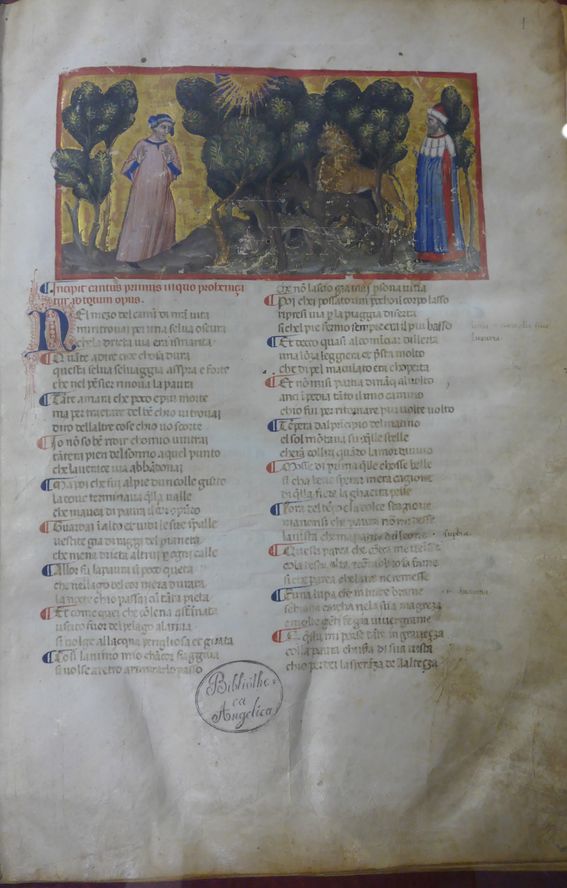 1
Incipit cantus primus in quo prohemiça
tur ad totum opus.
NEl mezo del cami di nra uita
mi ritrouai per una selua oscura
che la dirita uia era smarita
Quāte a dire cioe chosa dura
questa selua seluaggia asspra e forte
che nel pēsier rinoua la paura
Tāte amara che poco e piu morte
ma per tractare del bē chio ui trouai
diro dellaltre cose chio uo scorte
Io nō so bē ridir chomio uintrai
tātera pien del sonno aquel punto
che la uerace uia abbādonai
Ma poi che fui alpie dun colle gusto
la doue terminaua qlla ualle
che mauea di paura il cor
Guardai ī alto et uidi le sue spalle
uestite gia di raggi del pianeta
che mena dricta altrui per ogni calle
Allor fu la paura ū poco queta
che nel lago del cor mera durata
la nocte chio passai cū tāta pieta
Et come quei che cō lena affānata
uscito fuor del pelago ala riua
si uolge allacqua perigliosa et guata
Cosi lanimo mio chācor fuggiua
si uolse aretro a rimirar lo passo
che nō lascio gia mai psona uiua
Poi chei possato un pocho il corpo lasso
ripresi uia p la piaggia diserta
si chel pie fermo sempre era il piu basso
Et ecco quasi al comīciar dellerta
una lōza leggiera et psta molto
che di pel maculato era choperta
Et nō misi partia dināçi al uolto
anci īpedia tāto il mio camino
chio fui per ritornare piu uolte uolto
Tēpera dal prīcipio del matino
el sol mōtaua su cū qlle stelle
cherā collui quādo lamor diuino
Mosse di prima qlle chosse belle
si cha bene sperar mera cagione
di qlla fiera la gaetta pelle
Lora del tēpo e la dolce stagione
ma non si che paura nō mi desse
la uista che mi parue dū leone
Questi parea che cōtra me uenesse
cola testa alta et cō rabbiosa fame
si che parea che laire ne temesse
Et una lupa che di tutte brame
sebiaua charcha nella sua magreza
e molte gēti fe gia uiuer grame
Questa mi porse tāto di graueza
colla paura chuscia di sua uista
chio perdei la sperāza de la alteza
superbia
Bibliothe:
ca
Angelica